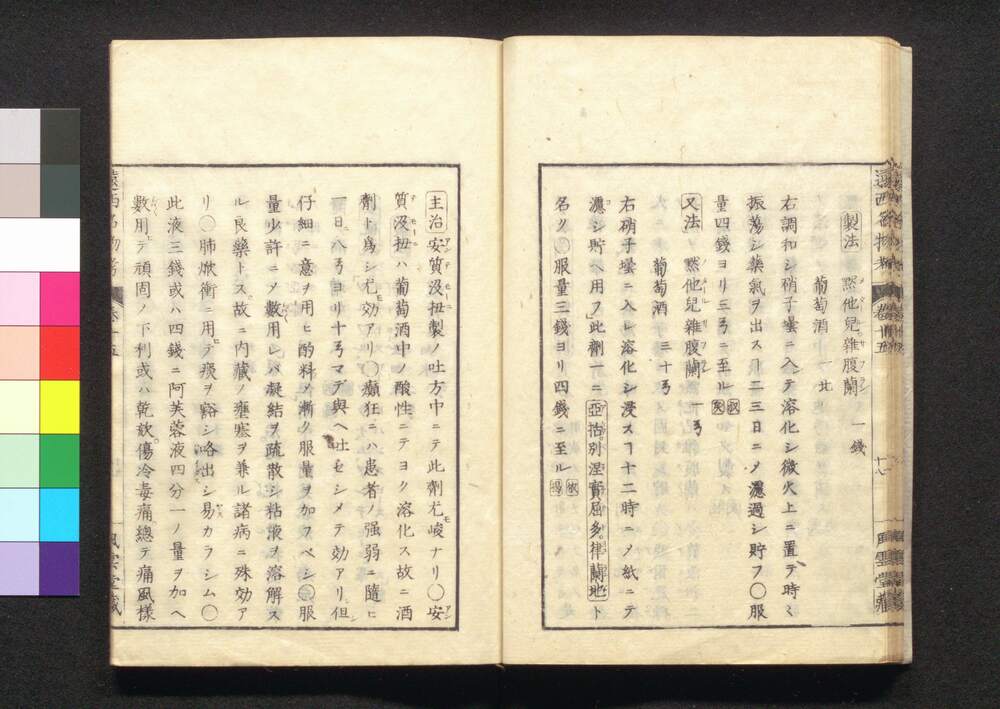 製法 黙他兒雜腹蘭 一錢
葡萄酒 一比
右調和シ硝子壜ニ入テ溶化シ微火上ニ置テ時々
振蕩シ藥氣ヲ出スヿ二三日ニメ濾過シ貯フ〇服
量四錢ヨリ三弓ニ至ル
又法 黙他兒雜腹蘭 一弓
葡萄酒 三十弓
右硝子壜ニ入レ溶化シ浸スヿ十二時ニメ紙ニテ
濾シ貯ヘ用フ此劑一ニ亞括別涅竇屈多律蘭地ト
名ク〇服量三錢ヨリ四錢ニ至ル
遠西名物考 卷十五
風雲堂藏
主治 安質没扭製ノ吐方中ニテ此劑尤峻ナリ〇安
質没扭ハ葡萄酒中ノ酸性ニテヨク溶化ス故ニ酒
劑ト爲シ尤効アリ〇癲狂ニハ患者ノ强弱ニ隨ヒ
一日ニ八弓ヨリ十弓マデ與ヘ吐セシメテ効アリ但
仔細ニ意ヲ用ヒ酌料メ漸ク服量ヲ加フベシ〇服
量少許ニメ數用レバ凝結ヲ疏散シ粘液ヲ溶解ス
ル良藥トス故ニ内藏ノ壅塞ヲ兼ル諸病ニ殊効ア
リ〇肺焮衝ニ用テ痰ヲ豁シ咯出シ易カラシム〇
此液三錢或ハ四錢ニ阿芙蓉液四分一ノ量ヲ加ヘ
數用テ頑固ノ下利或ハ乾欬傷冷毒痛總テ痛風樣
遠西名物考 卷十五
風雲堂藏